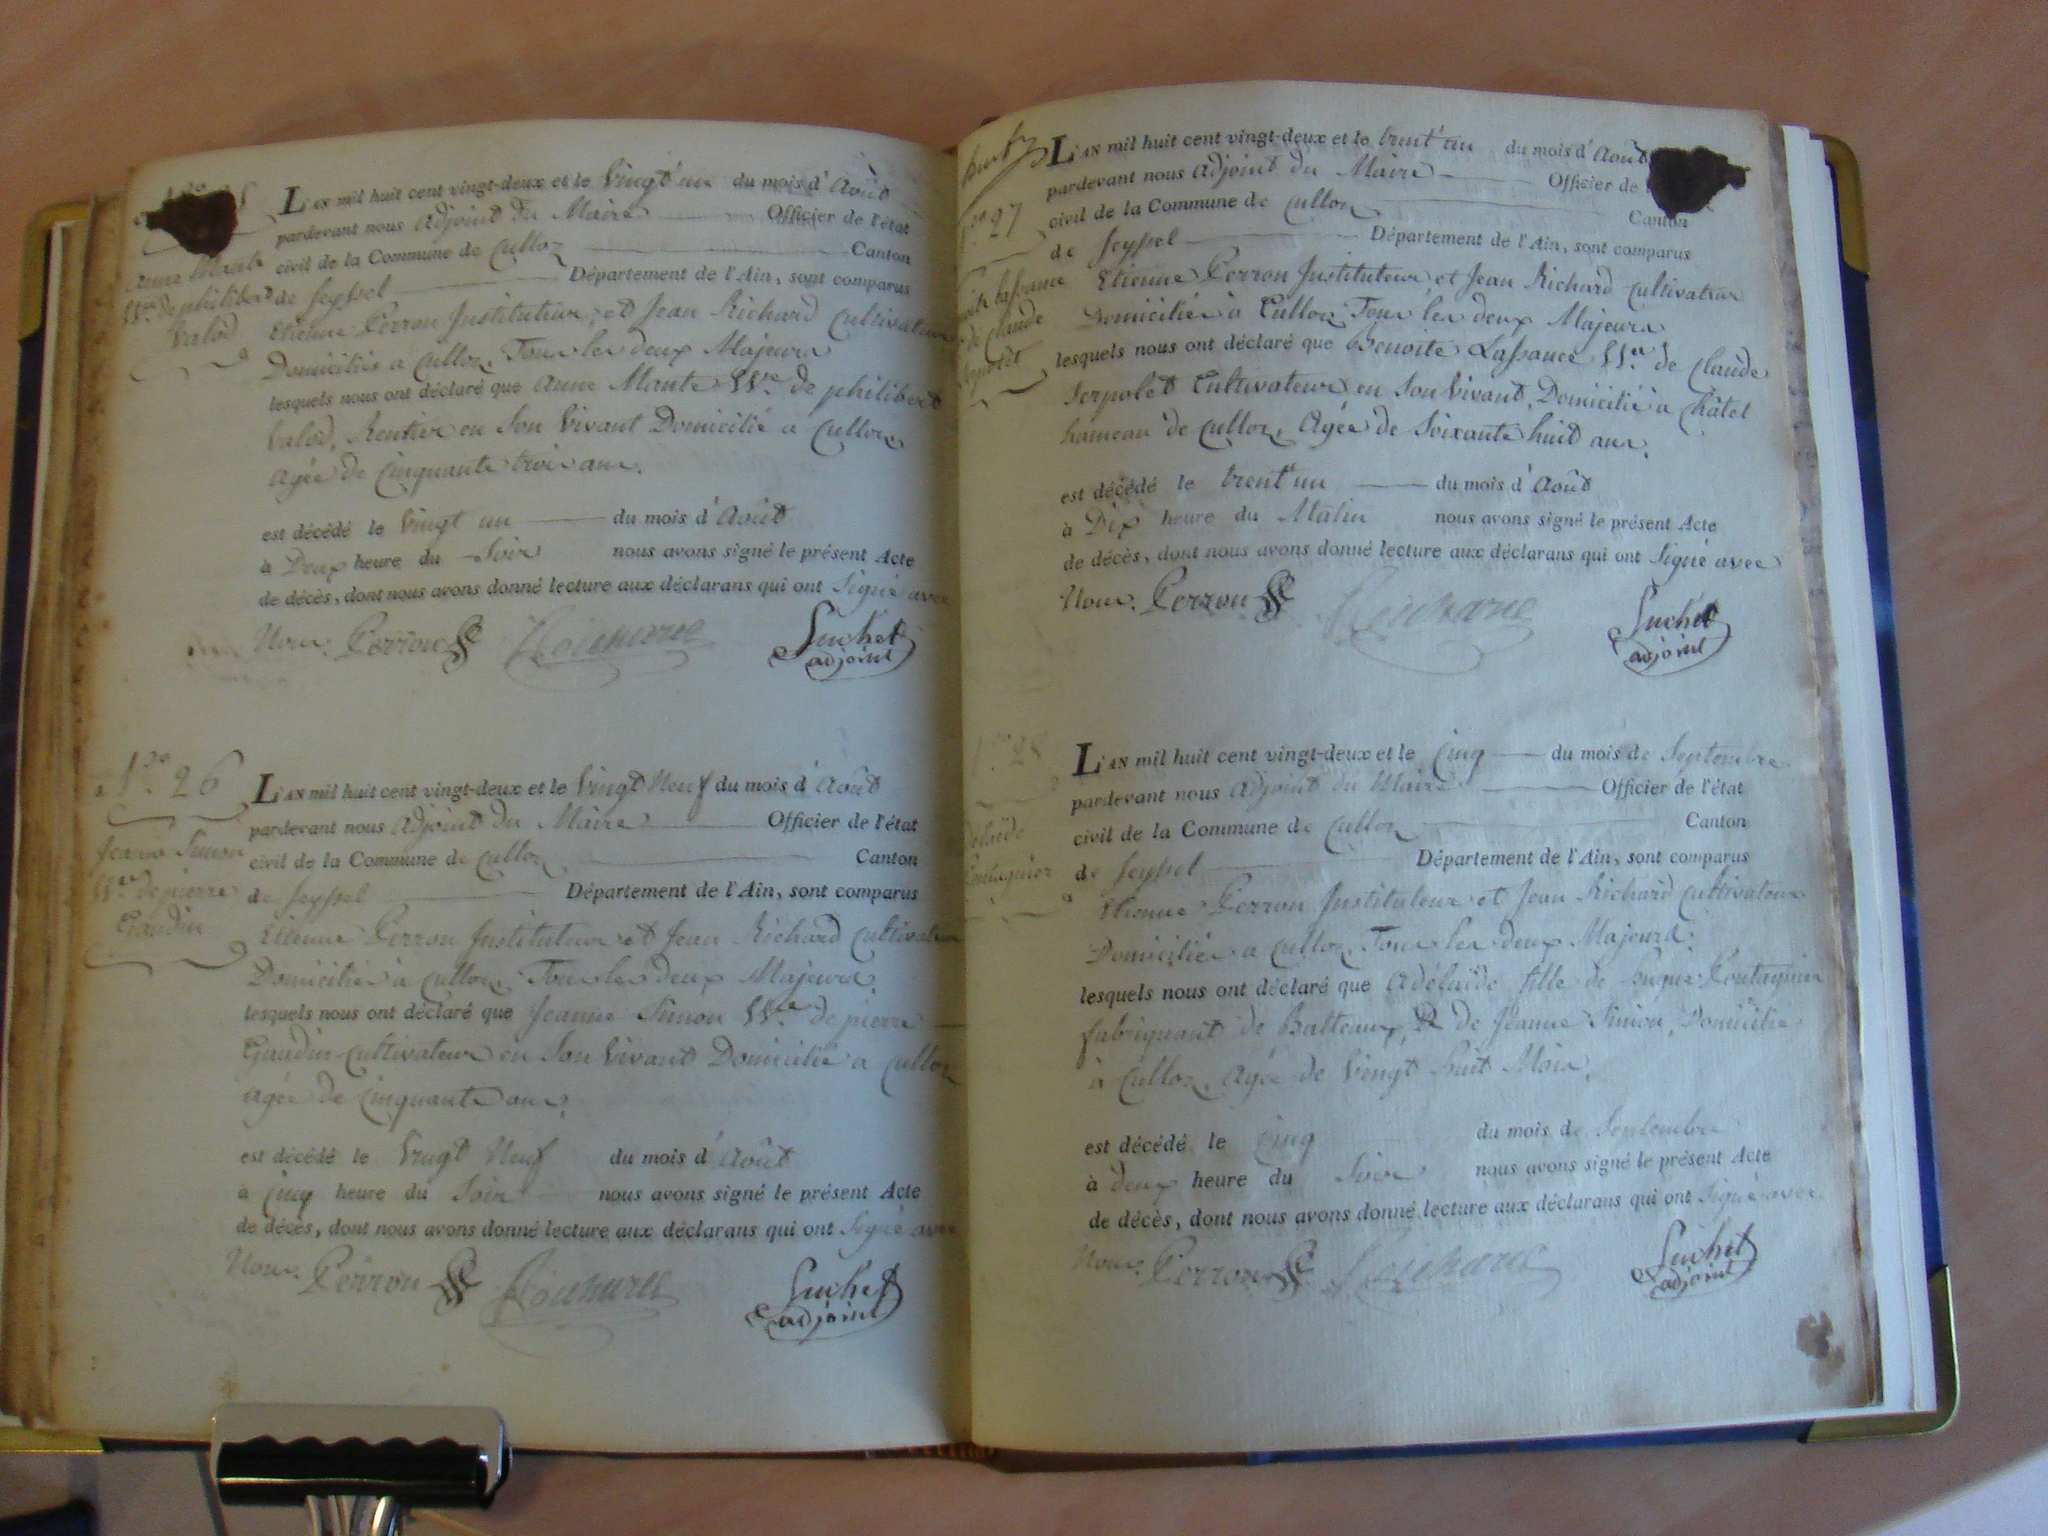 L'AN mil huit cent vingt-deux et le Vingt un du mois d'Août
pardevant nous Adjoint du Maire Officier de l'état
civil de la Commune de Culloz Canton
de Seyssel Département de l'Ain, sont comparus
Etienne Perron Instituteur, et Jean Richard Cultivateur
Domiciliés a Culloz, Tous les deux Majeurs
lesquels nous ont déclaré que Anne Mante Vve de philibert
Valod, Rentier en Son Vivant Domicilié a Culloz,
agée de Cinquante trois ans.
est décédé le Vingt un du mois d'Août
à Deux heure du Soir nous avons signé le présent Acte
de décès, dont nous avons donné lecture aux déclarans qui ont Signé avec
Nous. Perron Richard Suchet
adjoint
Anne Mante
Vve de philibert
Valod
No. 26
Jeanne Simon
Vve de pierre
Gaudin
L'AN mil huit cent vingt-deux et le Vingt Neuf du mois d'Août
pardevant nous Adjoint du Maire Officier de l'état
civil de la Commune de Culloz Canton
de Seyssel Département de l'Ain, sont comparus
Etienne Perron Instituteur et Jean Richard Cultivateur
Domiciliés à Culloz, Tous les deux Majeurs.
lesquels nous ont déclaré que Jeanne Simon Vve de pierre
Gaudin Cultivateur en Son Vivant Domicilié a Culloz
agée de Cinquante ans.
est décédé le Vingt Neuf du mois d'Août
à Cinq heure du Soir nous avons signé le présent Acte
de décès, dont nous avons donné lecture aux déclarans qui ont Signé avec
Nous. Perron Richard Suchet
adjoint
huit
No. 27
Lassance
de Claude
L'AN mil huit cent vingt-deux et le trent'un du mois d'Août
pardevant nous Adjoint du Maire Officier de
civil de la Commune de Culloz Canton
de Seyssel Département de l'Ain, sont comparus
Etienne Perron Instituteur et Jean Richard Cultivateur
Domiciliés à Culloz Tous les deux Majeurs
lesquels nous ont déclaré que Benoite Lassance Vve de Claude
Serpolet Cultivateur en Son Vivant, Domicilié a Châtel
hameau de Culloz, Agée de Soixante huit ans.
est décédé le trent'un du mois d'Août
à Dix heure du Matin nous avons signé le présent Acte
de décès, dont nous avons donné lecture aux déclarans qui ont Signé avec
Nous. Perron Richard Suchet
adjoint
No. 28
L'AN mil huit cent vingt-deux et le Cinq du mois de Septembre
pardevant nous Adjoint du Maire Officier de l'état
civil de la Commune de Culloz Canton
de Seyssel Département de l'Ain, sont comparus
Etienne Perron Instituteur et Jean Richard Cultivateur
Domiciliés a Culloz, Tous les deux Majeurs.
lesquels nous ont déclaré que Adélaïde fille de
fabriquant de Batteaux, & de Jeanne Simon, Domicilié
à Culloz, Agée de Vingt huit Mois.
est décédé le Cinq du mois de Septembre
à deux heure du Soir nous avons signé le présent Acte
de décès, dont nous avons donné lecture aux déclarans qui ont Signé avec
Nous. Perron Richard Suchet
adjoint